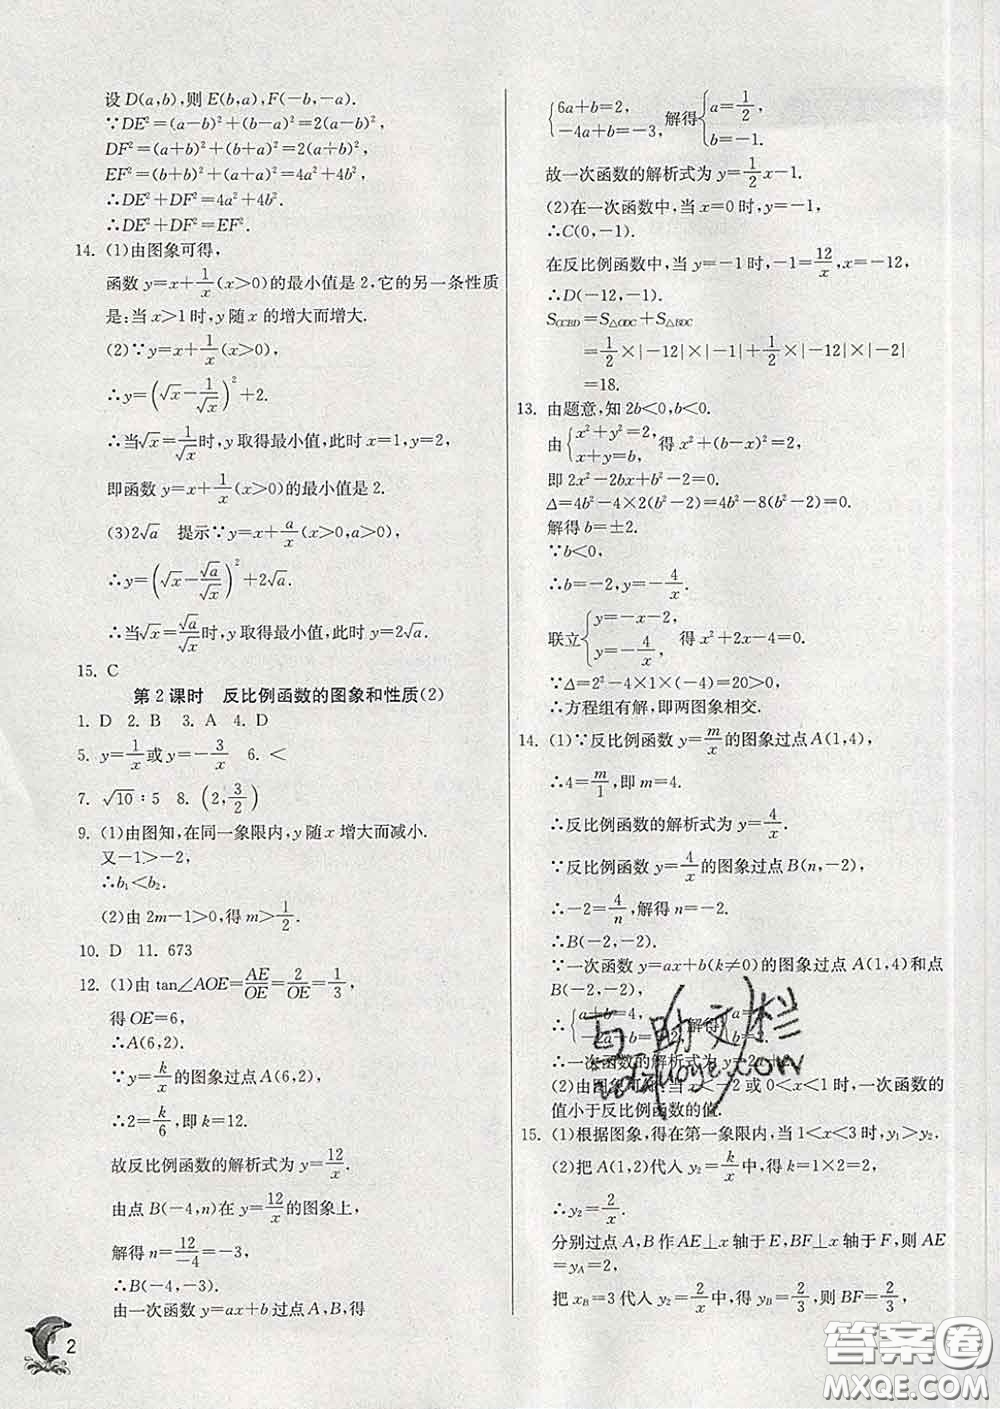 设 D(a,b),则 E(b,a),F(-b,-a).
∵DE²=(a-b)²+(b-a)²=2(a-b)²,
DF²=(a+b)²+(b+a)²=2(a+b)²,
EF²=(b+b)²+(a+a)²=4a²+4b².
∴DE²+DF²=4a²+4b².
∴DE²+DF²=EF².
14. (1)由图象可得,
函数 y=x+1/x(x>0)的最小值是 2,它的另一条性质
是:当 x>1 时,y 随 x 的增大而增大.
(2)∵y=x+1/x(x>0),
∴y=(√x-1/√x)²+2.
∴当√x=1/√x时,y 取得最小值,此时 x=1,y=2,
即函数 y=x+1/x(x>0)的最小值是 2.
(3)2√a 提示∵y=x+a/x(x>0),
∴y=(√x-√a/√x)²+2√a.
∴当√x=√a/√x时,y 取得最小值,此时 y=2√a.
15. C
第 2 课时 反比例函数的图象和性质(2)
1. D 2. B 3. A 4. D
5. y=1/x或 y=-3/x 6. <
7. √10∶5 8. (2,3/2)
9. (1)由图知,在同一象限内,y 随 x 增大而减小.
又-1>-2,
∴b₁<b₂.
(2)由 2m-1>0,得 m>1/2.
10. D 11. 673
12. (1)由 tan∠AOE=AE/OE=2/OE=1/3,
得 OE=6,
∴A(6,2).
∵y=k/x的图象过点 A(6,2),
∴2=k/6,即 k=12.
故反比例函数的解析式为 y=12/x.
由点 B(-4,n)在 y=12/x的图象上,
解得 n=12/-4=-3,
∴B(-4,-3).
由一次函数 y=ax+b 过点 A,B,得
{6a+b=2, -4a+b=-3, 解得{a=1/2, b=-1.
故一次函数的解析式为 y=1/2x-1.
(2)在一次函数中,当 x=0 时,y=-1,
∴C(0,-1).
在反比例函数中,当 y=-1 时,-1=12/x,x=-12,
∴D(-12,-1).
=S△ODC+S△BDC
=1/2×|-12|×|-1|+1/2×|-12|×|-2|
=18.
13. 由题意,知 2b<0,b<0.
由{x²+y²=2, x+y=b, 得 x²+(b-x)²=2,
即 2x²-2bx+b²-2=0.
Δ=4b²-4×2(b²-2)=4b²-8(b²-2)=0.
解得 b=±2.
∵b<0,
∴b=-2,y=-4/x.
联立{y=-x-2, y=-4/x, 得 x²+2x-4=0.
∵Δ=2²-4×1×(-4)=20>0,
∴方程组有解,即两图象相交.
14. (1)∵反比例函数 y=m/x的图象过点 A(1,4),
∴4=m/1,即 m=4.
∴反比例函数的解析式为 y=4/x.
∵反比例函数 y=4/x的图象过点 B(n,-2),
∴-2=4/n,解得 n=-2.
∴B(-2,-2).
∵一次函数 y=ax+b(k≠0)的图象过点 A(1,4)和点
B(-2,-2),
∴{a+b=4, -2a+b=-2, 解得
∴一次函数的解析式为 y=2x+2.
(2)由图象可知:当 x<-2 或 0<x<1 时,一次函数的
值小于反比例函数的值.
15. (1)根据图象,得在第一象限内,当 1<x<3 时,y₁>y₂.
(2)把 A(1,2)代入 y₂=k/x中,得 k=1×2=2,
∴y₂=2/x.
分别过点 A,B 作 AE⊥x 轴于 E,BF⊥x 轴于 F,则 AE
=yA=2,
把 xB=3 代入 y₂=2/x中,得 yB=2/3,则 BF=2/3,
2
答案圈
MXQE.COM